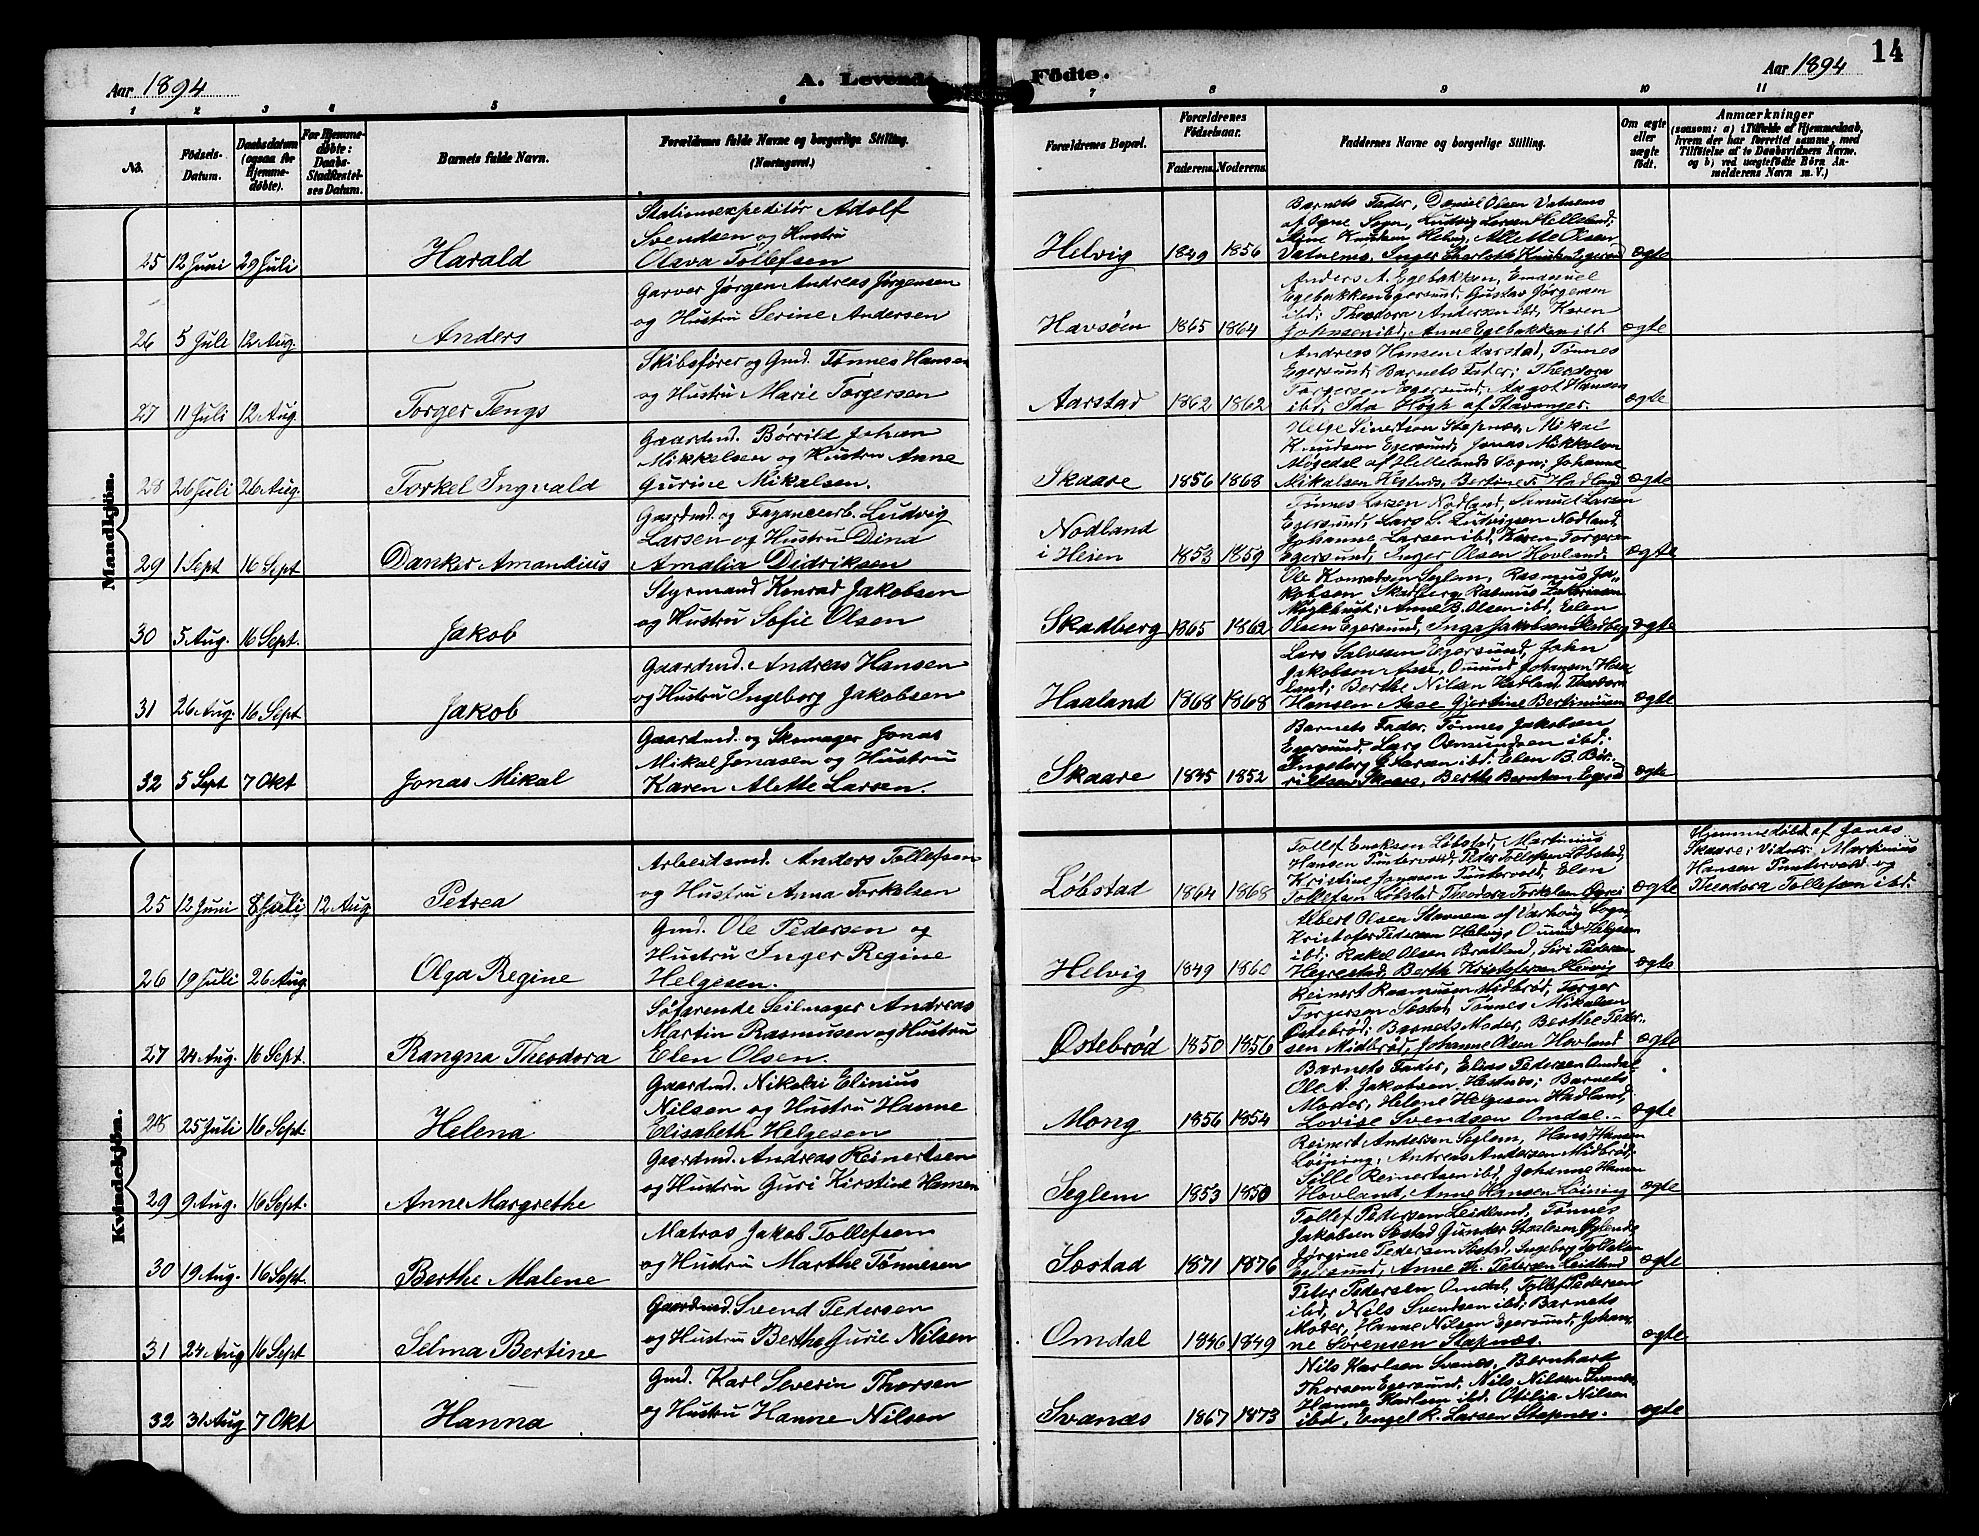 14
Aar 1894
A. Levende Födte.
Aar 1894
1 2 3 4 5 6 7 8 9 10 11
No.
Födsels-
Datum.
Daabsdatum
(ogsaa for
Hjemme-
døbte).
For Hjemme-
døbte:
Daabs-
Stadfæstel-
ses Datum.
Barnets fulde Navn.
Forældrenes fulde Navne og borgerlige Stilling.
(Næringsvei.)
Forældrenes Bopæl.
Forældrenes
Födselsaar.
Faderens. Moderens.
Faddernes Navne og borgerlige Stilling.
Om ægte
eller
uægte
födt.
Anmærkninger
(saasom: a) i Tilfælde af Hjemmedaab,
hvem der har forrettet samme, med
Tilföielse af to Daabsvidners Navne,
og b) ved uægtefödte Börn An-
melderens Navn m. V.)
Mandkjön.
25 12 Juni 29 Juli Harald
Stationsexpeditör Adolf
Svendsen og Hustru
Olava Tollefsen
Helvig 1849 1856
Barnets Fader, Daniel Olsen Vatnemo
af Ogne Sogn, Ludvig Larsen Helleland;
Knudsen Helvig, Alette Olsen
Vatnemo, Inger Charlotte
ægte
26 5 Juli 12 Aug. Anders
Garver Jørgen Andreas Jørgensen
og Hustru Serine Andersen
Havsøen 1865 1864
Anders A. Egebakken, Emanuel
Egebakken Egersund, Gustav Jørgensen
ibd; Theodora Andersen ibd, Karen
Johnsen ibd, Anne Egebakken ibd.
ægte
27 11 Juli 12 Aug. Torger Tengs
Skibsfører og Gmd. Tønnes Hansen
og Hustru Marie Torgersen
Aarstad 1862 1862
Andreas Hansen Aarstad, Tønnes
Egersund, Barnets Fader; Theodora
Torgersen Egersund, Aagot Hansen
ibd, Ida Høgh af Stavanger.
ægte
28 26 Juli 26 Aug. Torkel Ingvald
Gaardmd. Børrild Johan
Mikkelsen og Hustru Anne
Gurine Mikalsen.
Skaare 1856 1868
Helge Sivertsen Stapnæs, Mikal
Knudsen Egersund, Jonas Mikkelsen
Møgedal af Hellelands Sogn; Johanne
Mikalsen Hestnæs, Bertine Hadland
ægte
29 1 Sept 16 Sept Danker Amandius
Gaardmd. og Fayancearb. Ludvig
Larsen og Hustru Dina
Amalia Didriksen
Nodland
i Heien 1853 1859
Tønnes Larsen Nodland, Samuel Larsen
Egersund, Lars L. Ludvigsen Nodland,
Johanne Larsen ibd, Karen Torgersen
Egersund, Inger Olsen Hovland
ægte
30 5 Aug. 16 Sept. Jakob
Styrmand Konrad Jakobsen
og Hustru Sofie Olsen
Skadberg 1865 1862
Ole Konradsen Seglem, Rasmus Ja-
kobsen Skadberg, Rasmus Zakariasen
Anne B. Olsen ibd, Elen
Olsen Egersund, Inga Jakobsen Skadberg
ægte
31 26 Aug. 16 Sept Jakob
Gaardmd. Andreas Hansen
og Hustru Ingeborg Jakobsen
Haaland 1868 1868
Lars Salvesen Egersund, John
Jakobsen Aase, Omund Johansen Haa-
land; Berthe Nilsen Hadland, Theodora
Hansen Aase Gjertine Bertinsen
ægte
32 5 Sept 7 Okt Jonas Mikal
Gaardmd. og Skomager Jonas
Mikal Jonasen og Hustru
Karen Alette Larsen.
Skaare 1845 1852
Barnets Fader, Tønnes Jakobsen
Egersund, Lars Osmundsen ibd;
Ingeborg E. Larsen ibd. Elen B. Bør-
rildsen Skaare, Berthe Berntsen Egersd
ægte
Kvindekjön.
25 12 Juni 8 Juli 12 Aug Petrea
Arbeidsmd. Anders Tollefsen
og Hustru Anna Torkelsen
Løbstad 1864 1868
Tollef Eriksen Løbstad, Martinius
Hansen Puntervold, Peder Tollefsen Løbstad,
Kristine Puntervold, Elen
Tollefsen Løbstad Theodora Torkelsen
ægte
Hjemmedöbt af Jonas
Skaare; Vidner: Martinius
Hansen Puntervold og
Theodora Tollefsen ibd.
26 19 Juli 26 Aug. Olga Regine
Gmd. Ole Pedersen og
Hustru Inger Regine
Helgesen.
Helvig 1849 1860
Albert Olsen Stavnem af Varhoug Sogn,
Kristofer Pedersen Helvig, Omund Helgesen
ibd; Rakel Olsen Bratland, Siri Pedersen
Hegrestad, Berthe Kristofersen Helvig
ægte
27 24 Aug. 16 Sept. Rangna Theodora
Søfarende Seilmager Andreas
Martin Rasmussen og Hustru
Elen Olsen.
Østebrød 1850 1856
Reinert Rasmussen Midbrød, Torger
Torgersen Sostad, Tønnes Mikalsen
Østebrød; Barnets Moder, Berthe Peder-
sen Midbrød, Johanne Olsen Hovland
ægte
28 25 Juli 16 Sept. Helena
Gaardmd. Nikolai Elinius
Nilsen og Hustru Hanne
Elisabeth Helgesen
Mong 1856 1854
Barnets Fader, Elias Pedersen Omdal,
Ole A. Jakobsen Hestnæs; Barnets
Moder, Helene Helgesen Hadland,
Lovise Svendsen Omdal.
ægte
29 9 Aug. 16 Sept. Anne Margrethe
Gaardmd. Andreas Reinertsen
og Hustru Guri Kirstine Hansen
Seglem 1853 1850
Reinert Andersen Seglem, Hans Hansen
Løining, Andreas Andersen Midbrød;
Sille Reinertsen ibd, Johanne Hansen
Hovland, Anne Hansen Løining
ægte
30 19 Aug. 16 Sept. Berthe Malene
Matros Jakob Tollefsen
og Hustru Marthe Tønnesen
Sostad 1871 1876
Tollef Pedersen Leidland, Tønnes
Jakobsen Sostad Gunder Staalesen
Jørgine Pedersen Sostad, Ingeborg Tollefsen
Egersund, Anne Th. Petersen Leidland
ægte
31 24 Aug 16 Sept Selma Bertine
Gaardmd. Svend Pedersen
og Hustru Berthe Gurie Nilsen
Omdal 1846 1849
Peter Pedersen Omdal, Tollef Pedersen
ibd, Nils Svendsen ibd; Barnets
Moder, Hanne Nilsen Egersund, Johan-
ne Sørensen Stapnæs.
ægte
32 31 Aug 7 Okt Hanna
Gmd. Karl Severin Thorsen
og Hustru Hanne Nilsen
Svanæs 1867 1873
Nils Karlsen Svanæs, Bernhart
Thorsen Egersund, Nils Nilsen Svanæs,
Hanne Karlsen ibd. Otilia Nilsen
ibd, Engel R. Larsen Stapnæs.
ægte